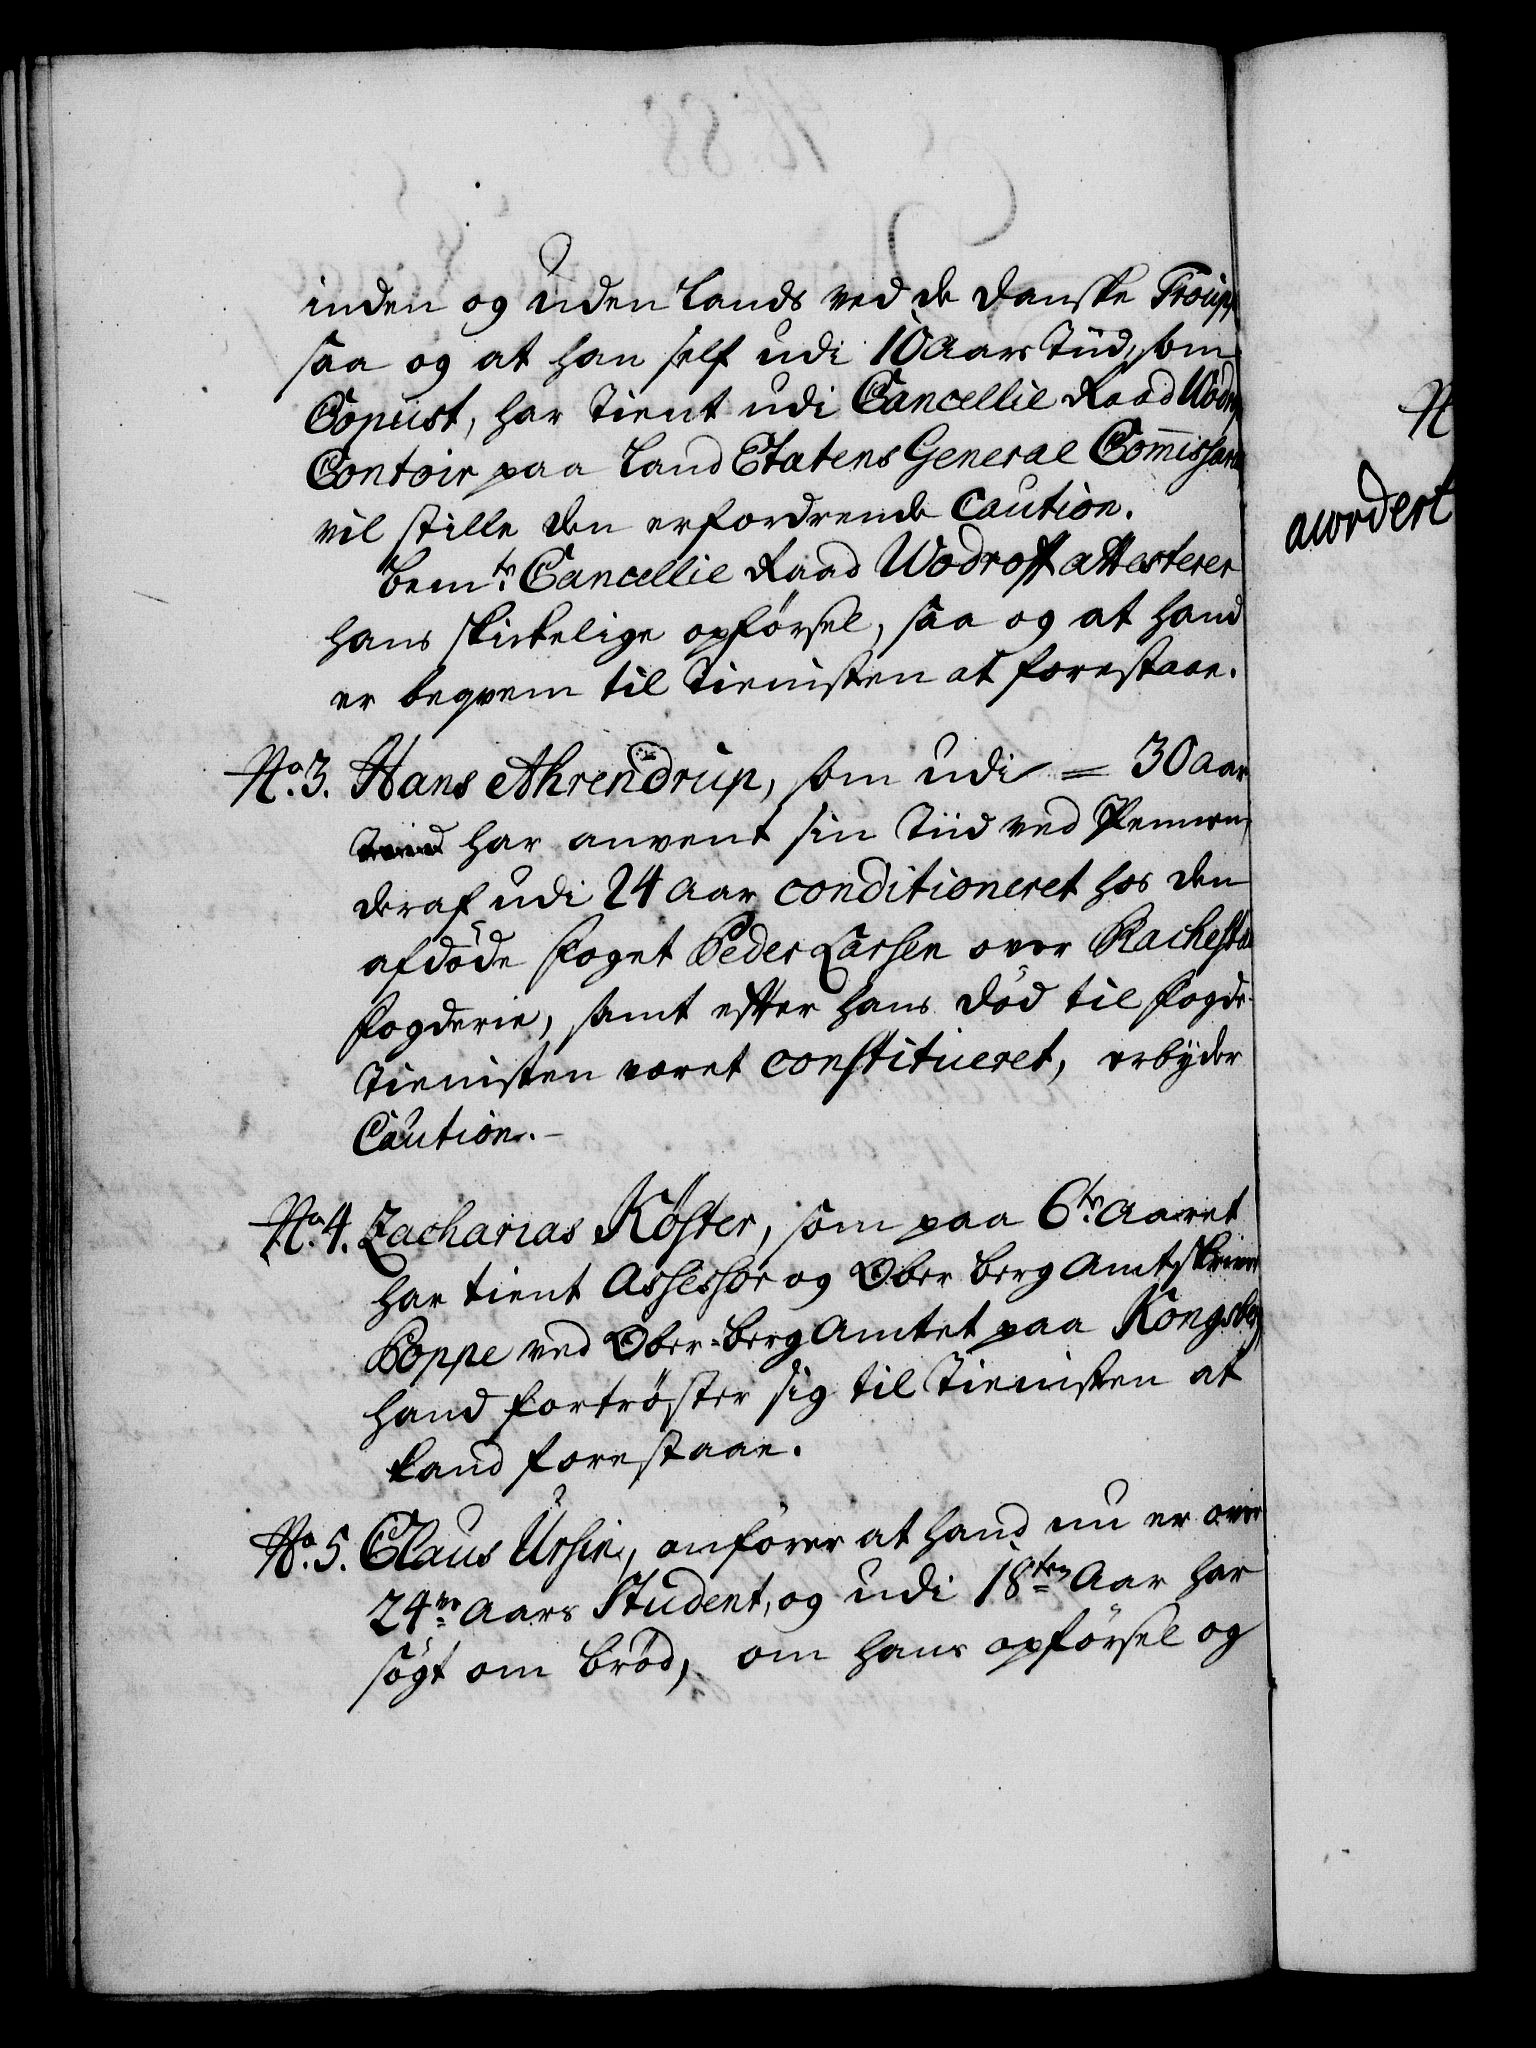 inden og uden Lands ved de danske Troup
saa og at han self udi 10 Aars Tiid, som
Copiist, har tient udi Cancellie Raad Wodr
Contoir paa Land Etatens General Commissari
vil stille den erfordrende Caution.
bemte Cancellie Raad Wodroff attesterer
hans skickelige opførsel, saa og at hand
er beqvem til Tienisten at forestaae.
No. 3. Hans Ahrendrup, som udi = 30 aar
har anvent sin Tiid ved Pennen,
deraf udi 24 Aar conditioneret hos den
afdøde foget Peder Larsen over Rachesta
fogderie, samt efter hans død til fogde-
Tienisten været constitueret, erbyder
Caution. -
No. 4. Zacharias Köster, som paa 6te Aaret
har tient Assessor og Ober berg Amtskriver
Poppe ved Ober-berg Amtet paa Kongsberg
hand fortrøster sig til Tienisten at
kand forestaae.
No. 5. Claus Ursin, anfører at hand nu er over
24re Aars Student, og udi 18ten Aar har
søgt om brød, om hans opførsel og
N
acordert